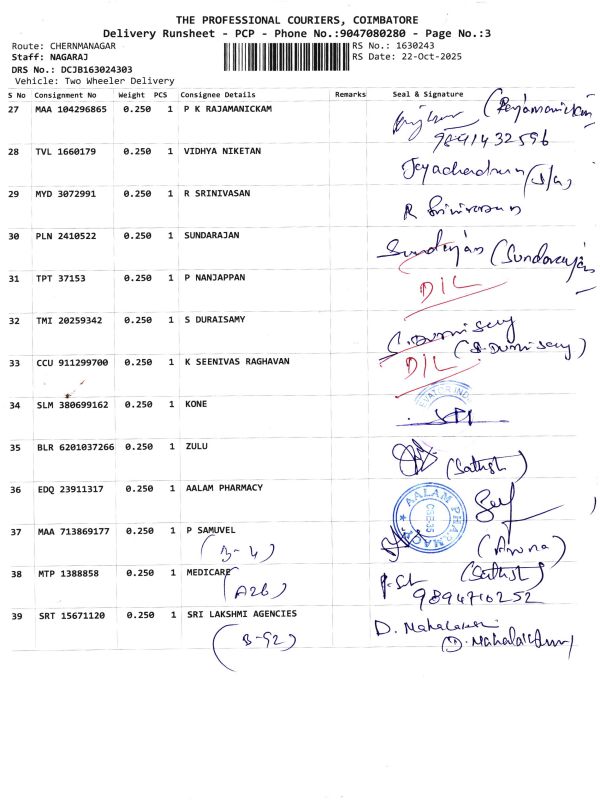 THE PROFESSIONAL COURIERS, COIMBATORE
Delivery Runsheet - PCP - Phone No.:9047080280 - Page No.:3
Route: CHERNMANAGAR RS No.: 1630243
Staff: NAGARAJ RS Date: 22-Oct-2025
DRS No.: DCJB163024303
Vehicle: Two Wheeler Delivery
S No Consignment No Weight PCS Consignee Details Remarks Seal & Signature
27 MAA 104296865 0.250 1 P K RAJAMANICKAM
28 TVL 1660179 0.250 1 VIDHYA NIKETAN
29 MYD 3072991 0.250 1 R SRINIVASAN R Srinivasan
30 PLN 2410522 0.250 1 SUNDARAJAN
31 TPT 37153 0.250 1 P NANJAPPAN DIL
32 TMI 20259342 0.250 1 S DURAISAMY
33 CCU 911299700 0.250 1 K SEENIVAS RAGHAVAN DIL
34 SLM 380699162 0.250 1 KONE
35 BLR 6201037266 0.250 1 ZULU (Sathish)
36 EDQ 23911317 0.250 1 AALAM PHARMACY AALAM PHARMACY
37 MAA 713869177 0.250 1 P SAMUVEL (Aruna)
(B-4)
38 MTP 1388858 0.250 1 MEDICARE (Sathish)
(A26) 9894710252
39 SRT 15671120 0.250 1 SRI LAKSHMI AGENCIES
(B-92)